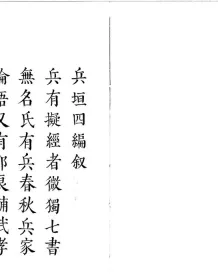 兵垣四編叙
兵有擬經者微獨七書
無名氏有兵春秋兵家
論語又有邵哀輔武孝